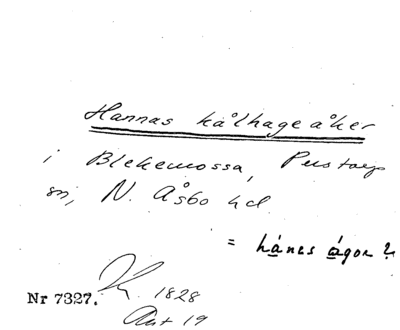 Hannas kålhageåker
i Blekemossa, Perstorp
sn, N. Åsbo hd.
= hánes ágor?
Nr 7327. 1828
Akt 19